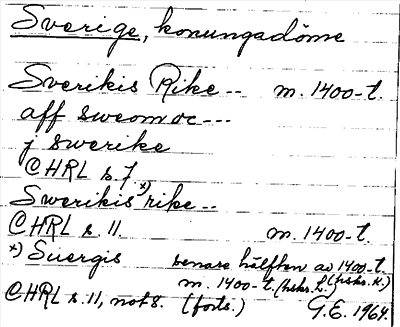 Sverige, konungadöme
Sverikis Rike -- m. 1400-t.
aff sweom oc ---
j swerike
CHRL s. 7
Swerikis *) rike --
CHRL s. 11. m. 1400-t.
*) Suergis senare hälften av 1400-t.
m. 1400-t.
CHRL s. 11, not 8. (forts.) G.E. 1964.